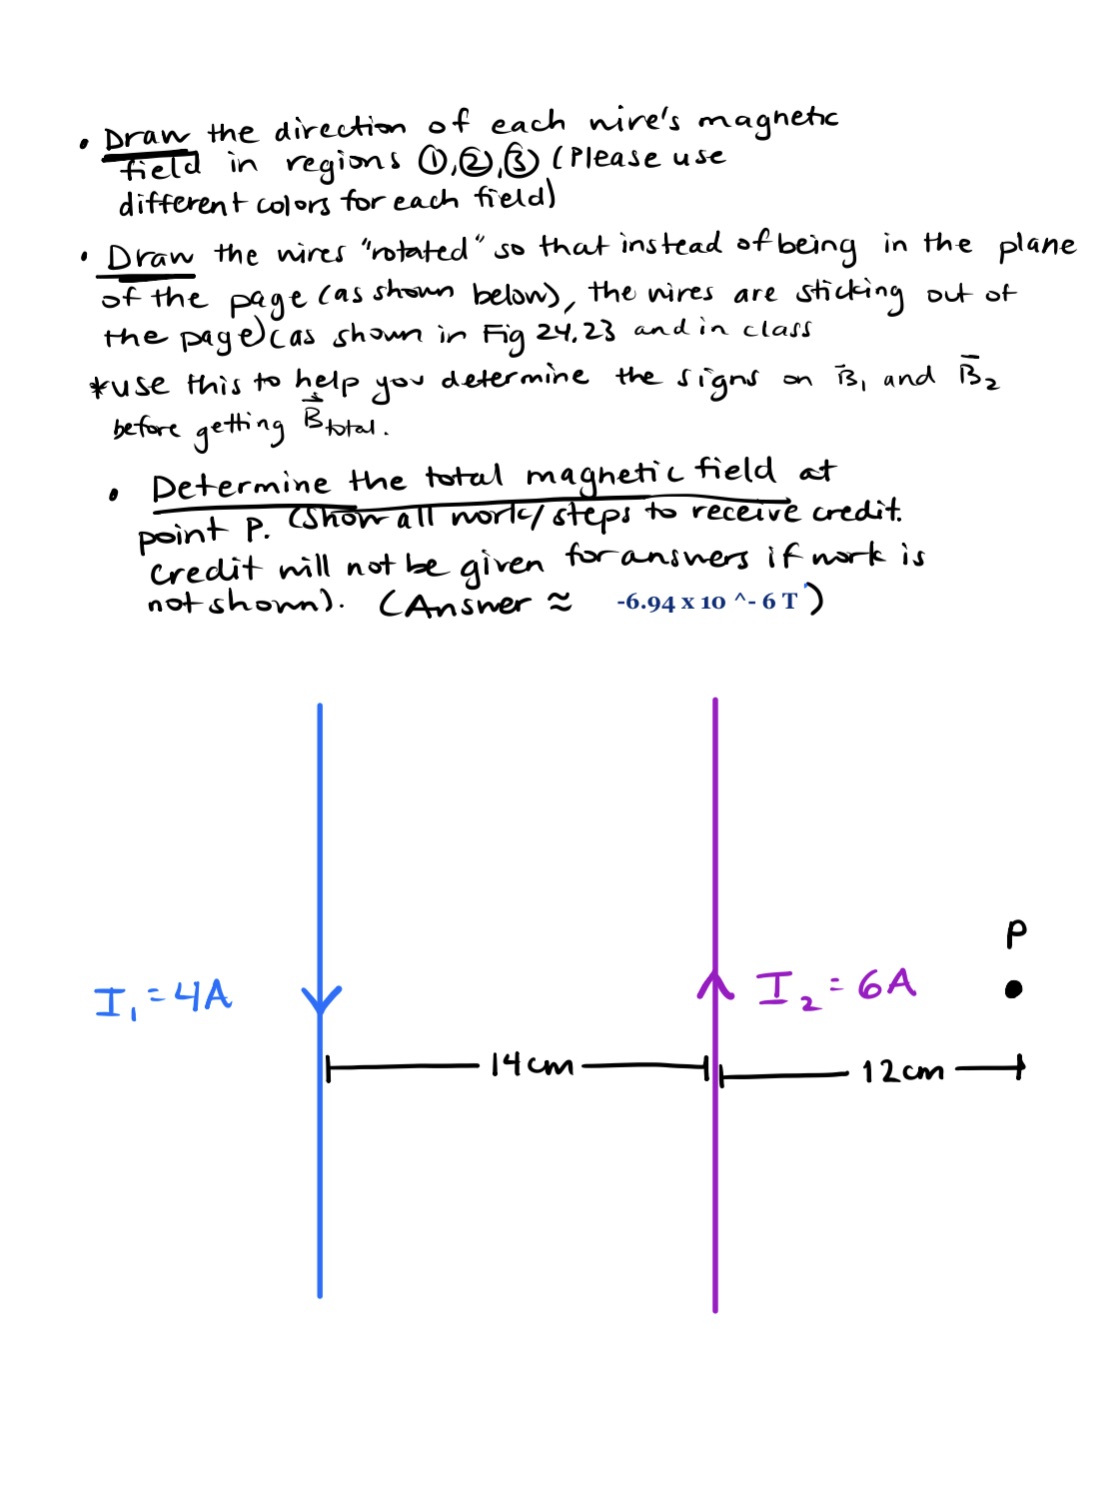 • Draw the direction of each wire's magnetic
field in regions ①,②,③ (Please use
different colors for each field)
• Draw the wires "rotated" so that instead of being in the plane
of the page (as shown below), the wires are sticking out of
the page)(as shown in Fig 24.23 and in class
*use this to help you determine the signs on B⃗₁ and B⃗₂
before getting B⃗total.
• Determine the total magnetic field at
point P. (Show all work/steps to receive credit.
Credit will not be given for answers if work is
not shown). (Answer ≈ -6.94 x 10 ^- 6 T )
P
I₁ = 4A
I₂ = 6A
14cm
12cm